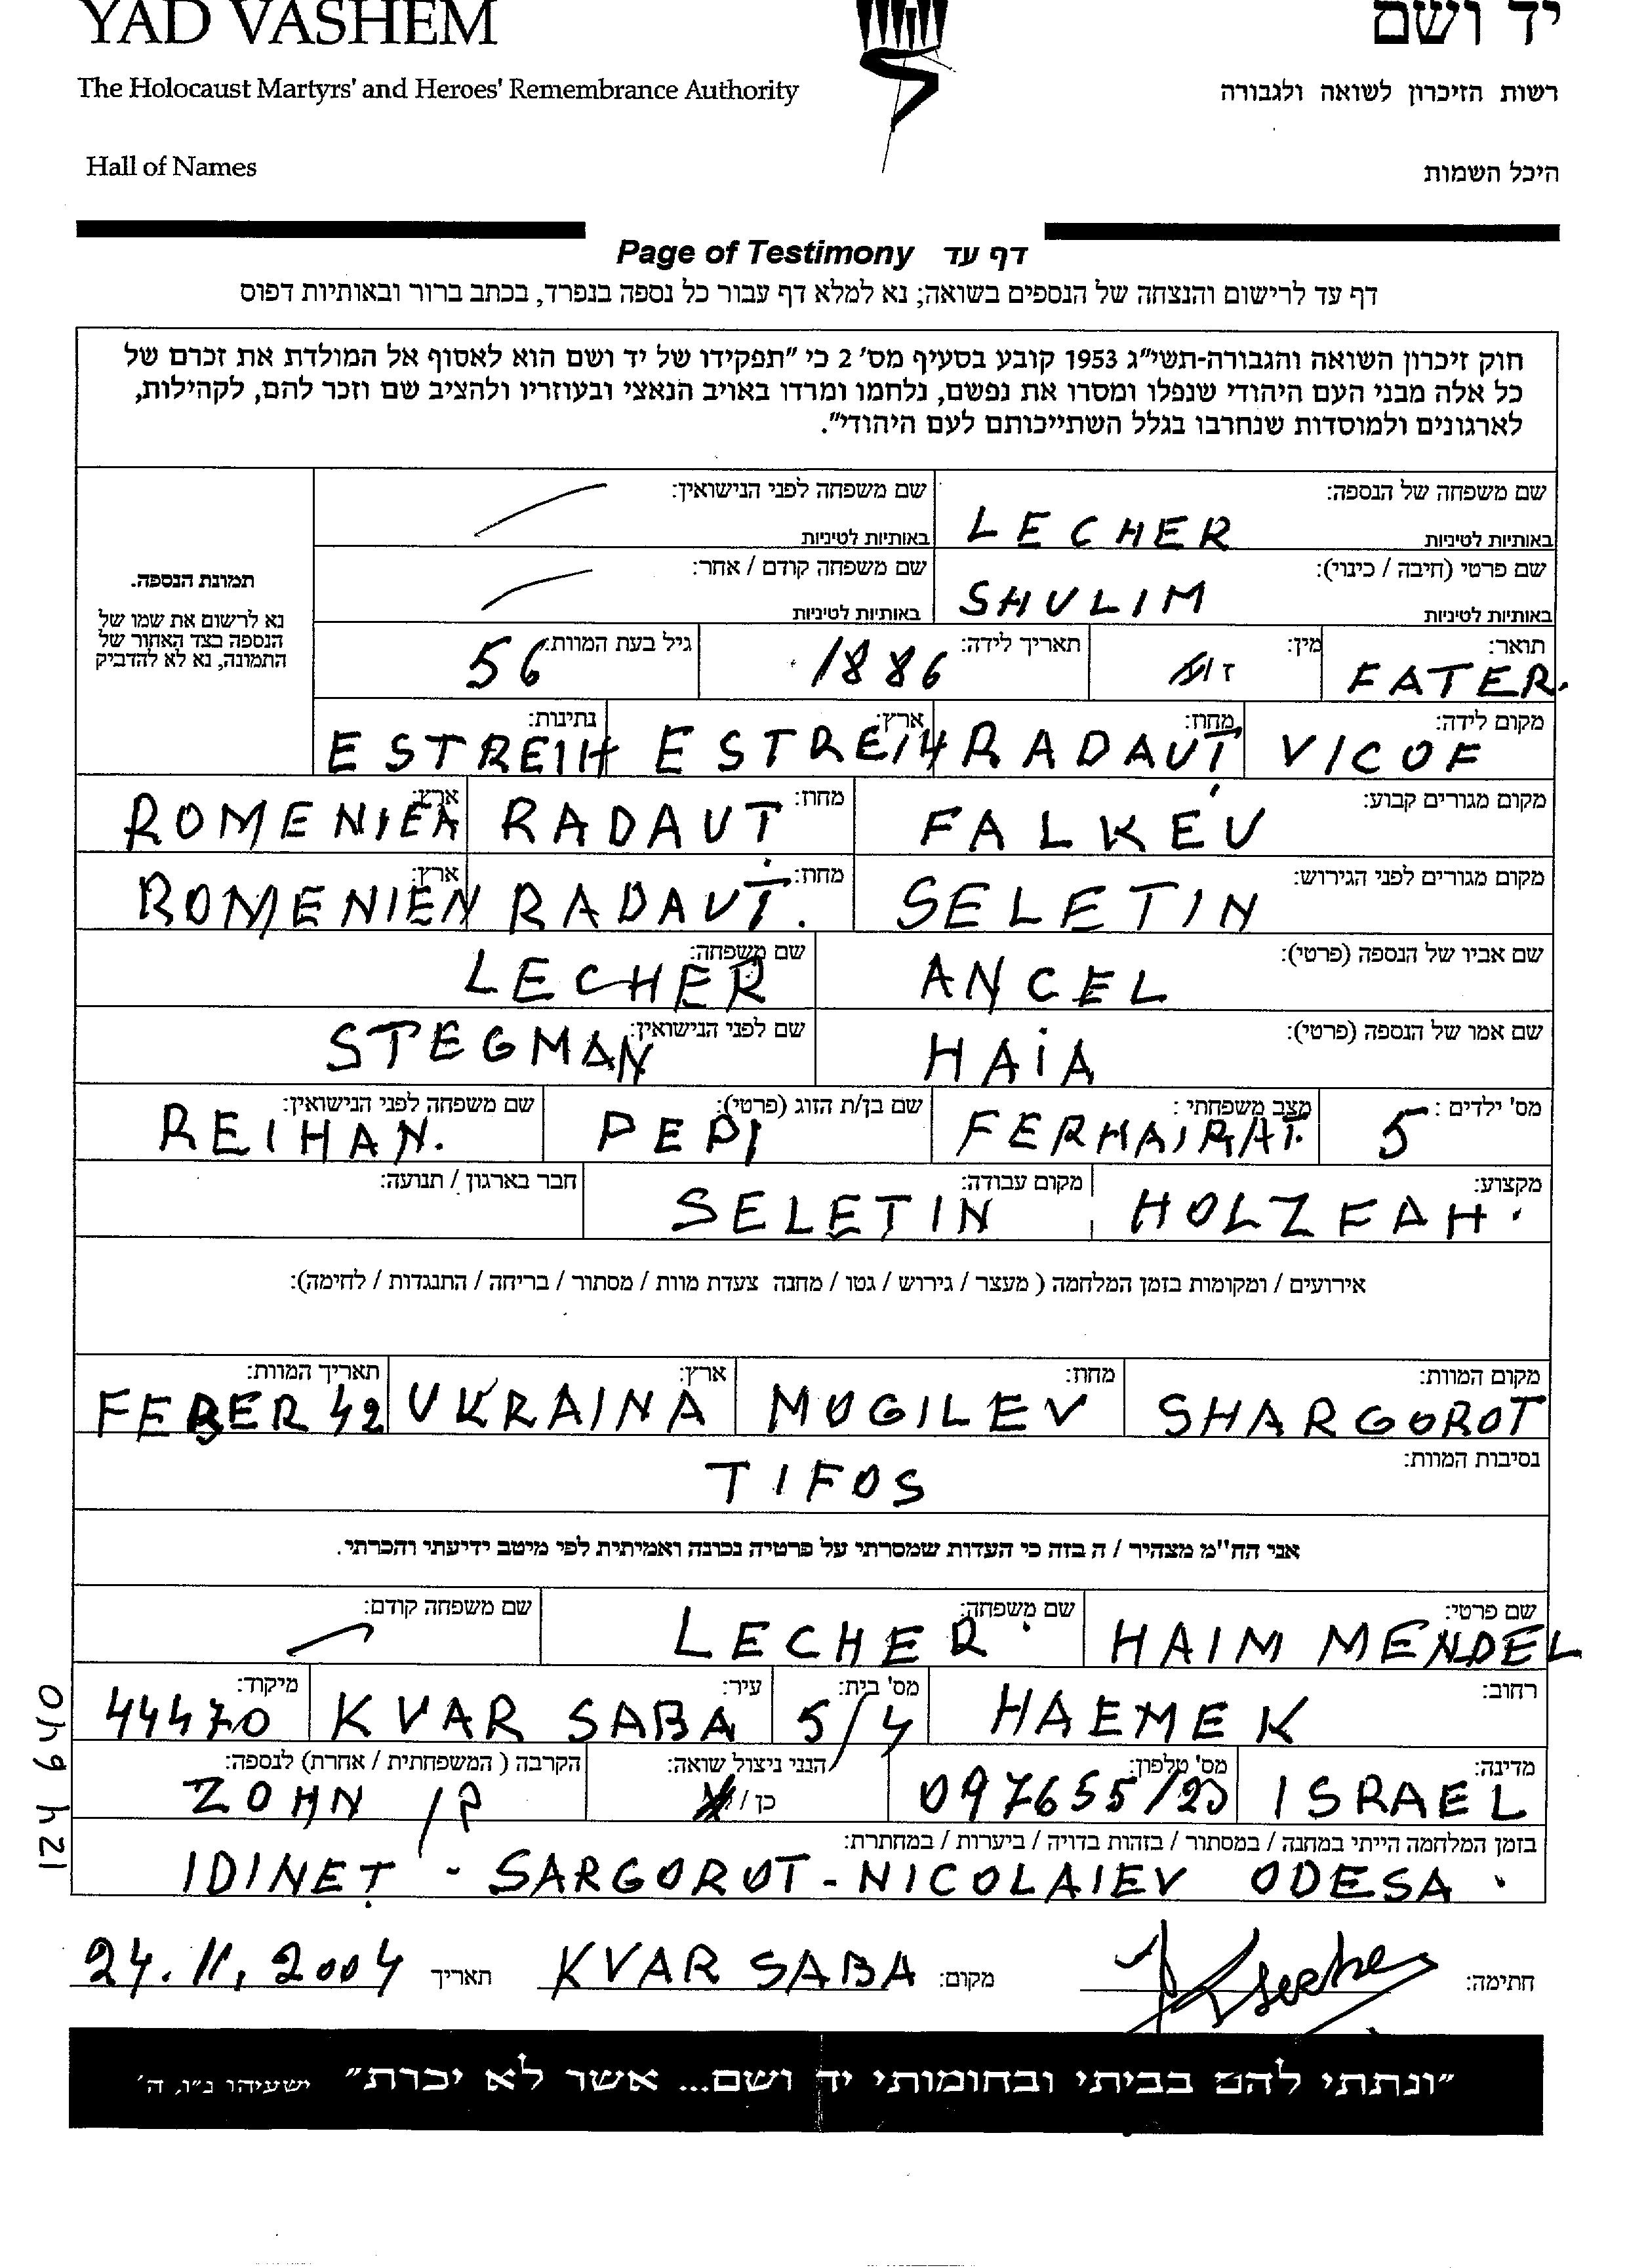 YAD VASHEM יד ושם
The Holocaust Martyrs' and Heroes' Remembrance Authority רשות הזיכרון לשואה ולגבורה
Hall of Names היכל השמות
Page of Testimony דף עד
דף עד לרישום והנצחה של הנספים בשואה; נא למלא דף עבור כל נספה בנפרד, בכתב ברור ובאותיות דפוס
חוק זיכרון השואה והגבורה-תשי"ג 1953 קובע בסעיף מס' 2 כי "תפקידו של יד ושם הוא לאסוף אל המולדת את זכרם של
כל אלה מבני העם היהודי שנפלו ומסרו את נפשם, נלחמו ומרדו באויב הנאצי ובעוזריו ולהציב שם וזכר להם, לקהילות,
לארגונים ולמוסדות שנחרבו בגלל השתייכותם לעם היהודי".
שם משפחה של הנספה: שם משפחה לפני הנישואין:
באותיות לטיניות LECHER באותיות לטיניות
שם פרטי (חיבה / כינוי): שם משפחה קודם / אחר:
באותיות לטיניות SHULIM באותיות לטיניות
תמונת הנספה.
נא לרשום את שמו של
הנספה בצד האחור של
התמונה, נא לא להדביק
תואר: מין: תאריך לידה: גיל בעת המוות:
FATER. ז 1886 56
מקום לידה: מחוז: ארץ: נתינות:
VICOF RADAUT ESTREIH ESTREIH
מקום מגורים קבוע: מחוז: ארץ:
FALKEU RADAUT ROMENIEA
מקום מגורים לפני הגירוש: מחוז: ארץ:
SELETIN RADAUT. ROMENIEN
שם אביו של הנספה (פרטי): שם משפחה:
ANCEL LECHER
שם אמו של הנספה (פרטי): שם לפני הנישואין:
HAIA STEGMAN
מס' ילדים: מצב משפחתי: שם בן/ת הזוג (פרטי): שם משפחה לפני הנישואין:
5 FERHAIRAT. PEPI REIHAN.
מקצוע: מקום עבודה: חבר בארגון / תנועה:
HOLZFAH. SELETIN
אירועים / ומקומות בזמן המלחמה ( מעצר / גירוש / גטו / מחנה צעדת מוות / מסתור / בריחה / התנגדות / לחימה):
מקום המוות: מחוז: ארץ: תאריך המוות:
SHARGOROT MOGILEV UKRAINA FEBER 42
נסיבות המוות:
TIFOS
אני הח"מ מצהיר / ה בזה כי העדות שמסרתי על פרטיה נכונה ואמיתית לפי מיטב ידיעתי והכרתי.
שם פרטי: שם משפחה: שם משפחה קודם:
HAIM MENDEL LECHER
רחוב: מס' בית: עיר: מיקוד:
HAEMEK 5/4 KVAR SABA 44470
מדינה: מס' טלפון: הנני ניצול שואה: הקרבה ( המשפחתית / אחרת) לנספה:
ISRAEL 097655120 כן / ZOHN בן
בזמן המלחמה הייתי במחנה / במסתור / בזהות בדויה / ביערות / במחתרת:
IDINET - SARGOROT - NICOLAIEV ODESA.
חתימה: מקום: KVAR SABA תאריך 24.11.2004
"ונתתי להם בביתי ובחומותי יד ושם... אשר לא יכרת" ישעיהו נ"ו, ה'